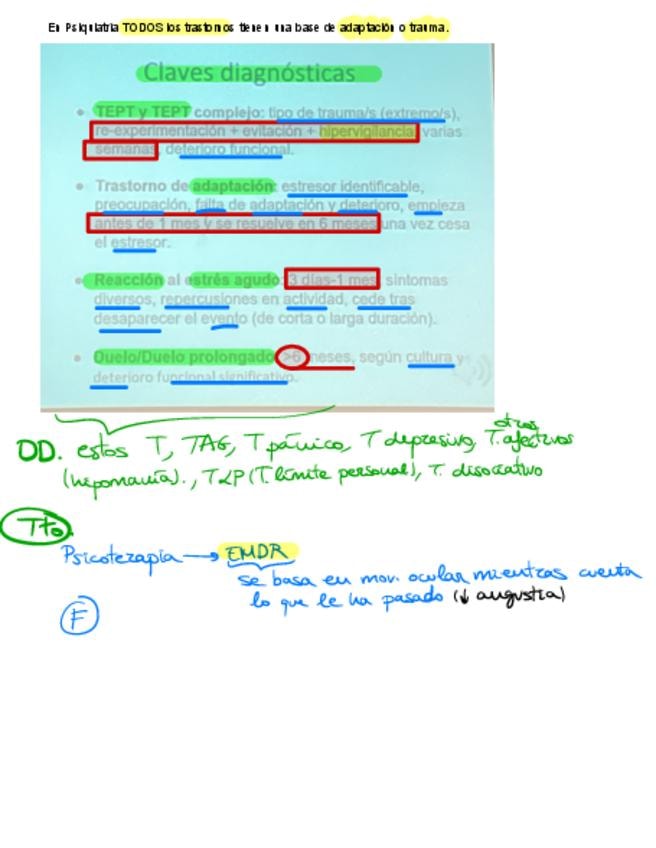 En Psiquiatría TODOS los trastornos tienen una base de adaptación o trauma.
Claves diagnósticas
• TEPT y TEPT complejo: tipo de trauma/s (extremo/s),
re-experimentación + evitación + hipervigilancia, varias
semanas, deterioro funcional.
• Trastorno de adaptación: estresor identificable,
preocupación, falta de adaptación y deterioro, empieza
antes de 1 mes y se resuelve en 6 meses una vez cesa
el estresor.
• Reacción al estrés agudo: 3 días-1 mes, síntomas
diversos, repercusiones en actividad, cede tras
desaparecer el evento (de corta o larga duración).
• Duelo/Duelo prolongado >6 meses, según cultura y
deterioro funcional significativo.
DD. estos T, TAG, T pánico, T depresivo, T. otros afectivos
(hipomanía)., TLP (T. límite personal), T. disociativo
Tto.
Psicoterapia → EMDR
se basa en mov. ocular mientras cuenta
lo que le ha pasado (↓ angustia)
F